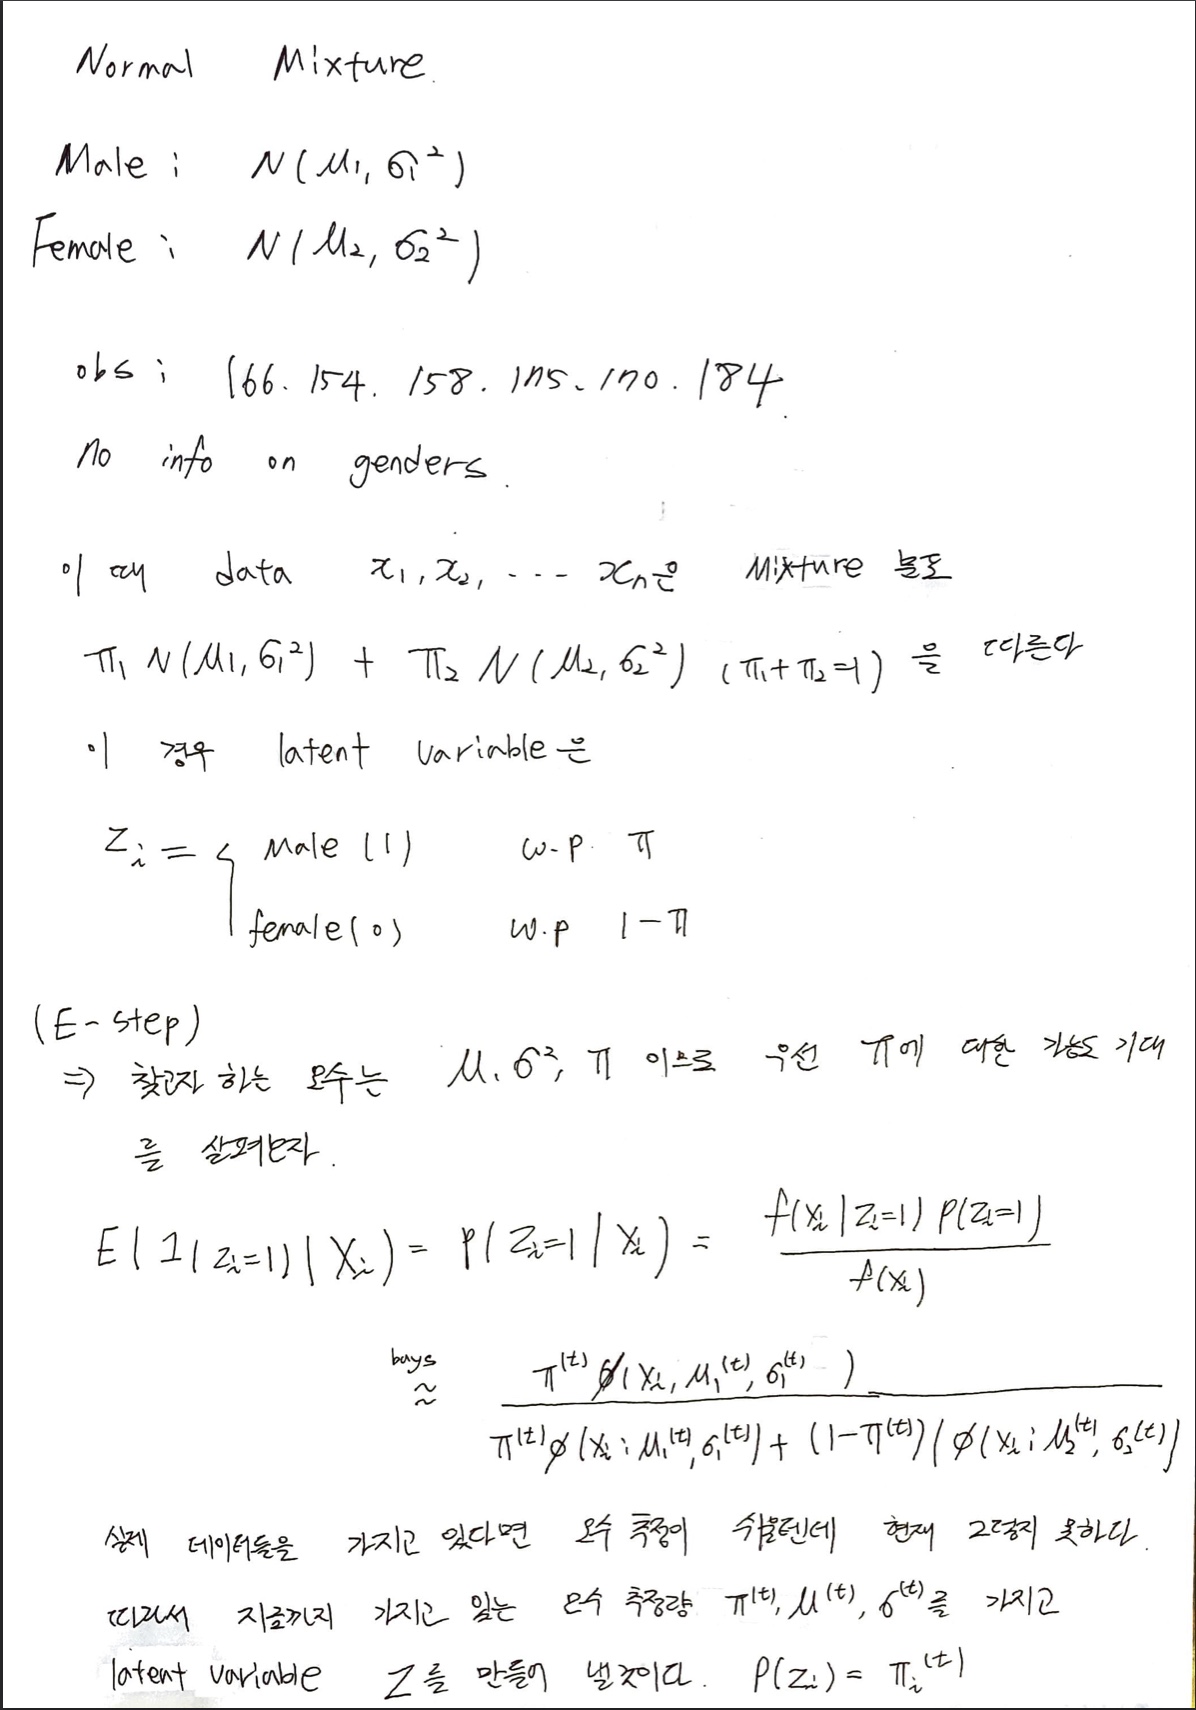 Normal Mixture.
Male ; N(μ₁, σ₁²)
Female ; N(μ₂, σ₂²)
obs ; 166. 154. 158. 175. 170. 184.
No info on genders.
이 때 data x₁, x₂, ... xₙ은 Mixture 분포
π₁ N(μ₁, σ₁²) + π₂ N(μ₂, σ₂²) (π₁+π₂=1) 을 따른다
이 경우 latent variable은
Zᵢ = { Male (1) w.p. π
female(0) w.p 1-π
(E-step)
⇒ 찾고자 하는 모수는 μ, σ², π 이므로 우선 π에 대한 가능도 기대
를 살펴보자.
E(1(Zᵢ=1)|Xᵢ) = P(Zᵢ=1|Xᵢ) = f(xᵢ|Zᵢ=1) P(Zᵢ=1) / f(xᵢ)
bays ≈ π⁽ᵗ⁾ϕ(xᵢ, μ₁⁽ᵗ⁾, σ₁⁽ᵗ⁾) / π⁽ᵗ⁾ϕ(xᵢ; μ₁⁽ᵗ⁾, σ₁⁽ᵗ⁾) + (1-π⁽ᵗ⁾)(ϕ(xᵢ; μ₂⁽ᵗ⁾, σ₂⁽ᵗ⁾)
실제 데이터들을 가지고 있다면 모수 추정이 쉬울텐데 현재 그렇지 못하다.
따라서 지금까지 가지고 있는 모수 추정량 π⁽ᵗ⁾, μ⁽ᵗ⁾, σ⁽ᵗ⁾를 가지고
latent variable Z를 만들어 낼것이다. P(Zᵢ) = πᵢ⁽ᵗ⁾